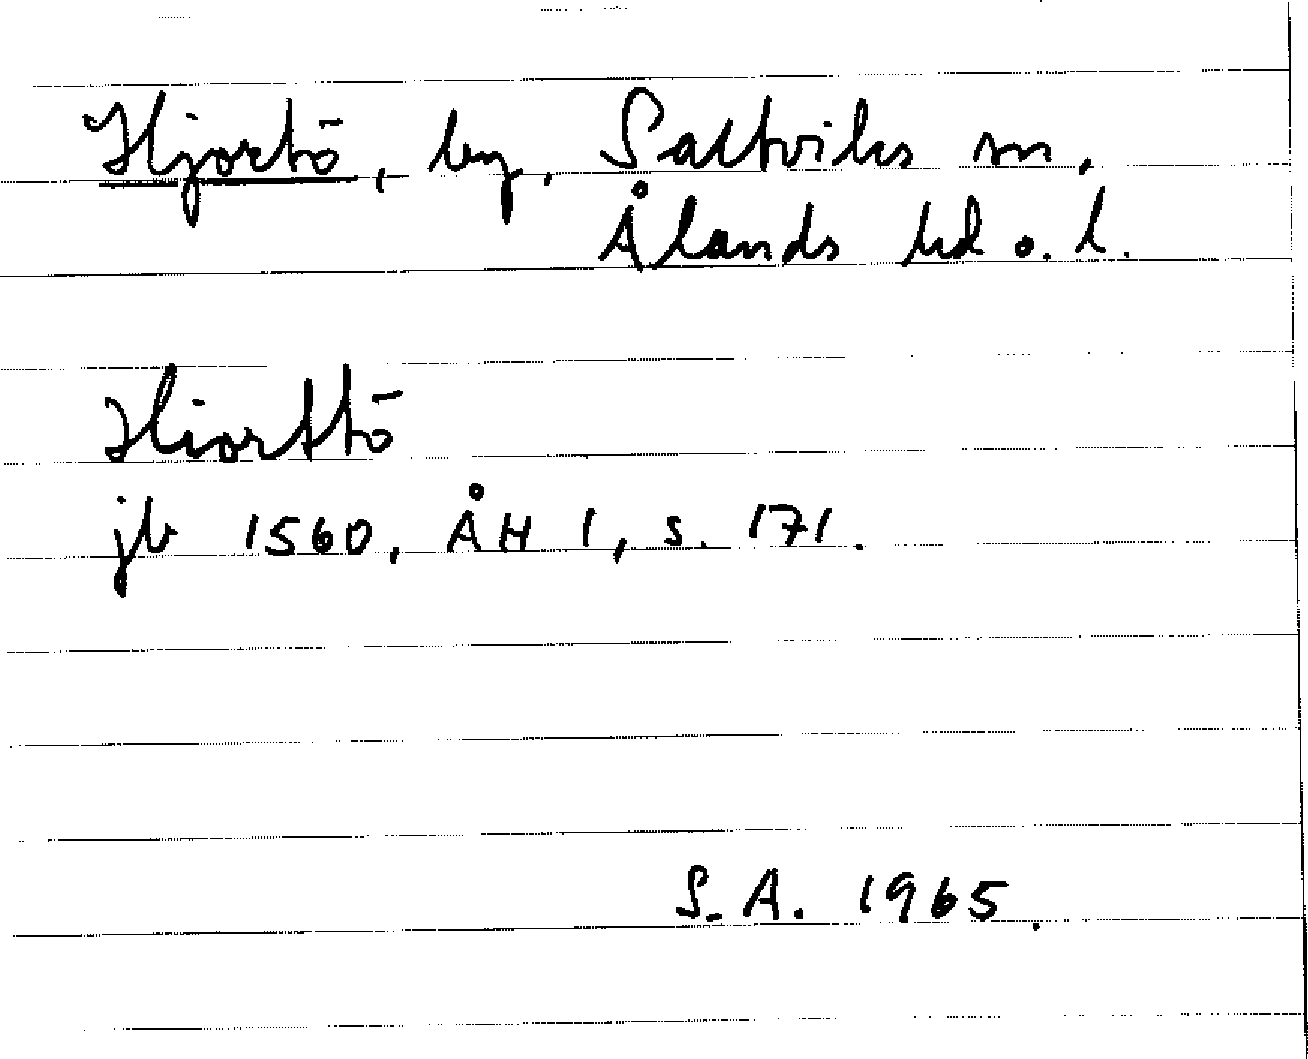 Hjortö, by, Saltviks sn,
Ålands hd o. l.
Hiorttö
jb 1560, ÅH 1, s. 171.
S.A. 1965.